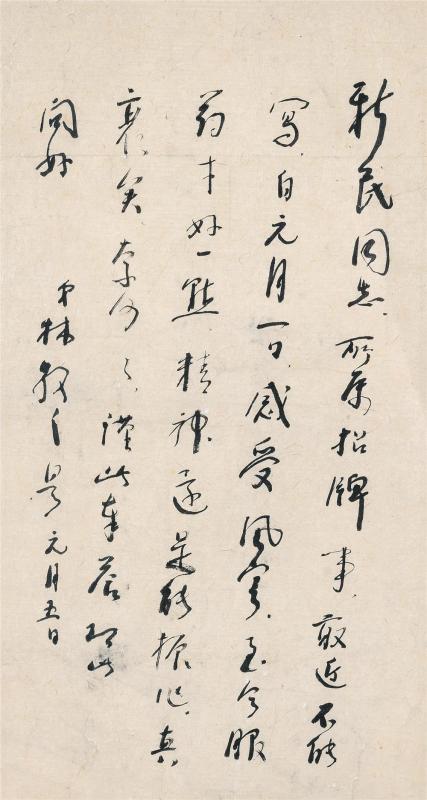 新民同志,所属招牌事,最近不能
写,自元月一日,感受风寒,至今服
药才好一点,精神还是能振作,真
衰矣,奈何々,谨此奉答,即此
问好
弟林散之
元月五日